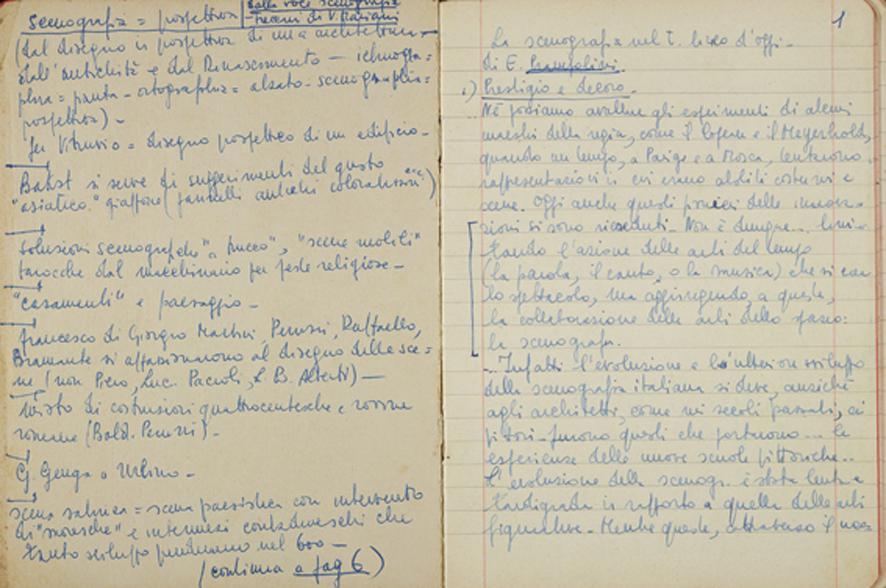 Scenografia = prospettiva
dalla voce scenografia
Treccani di V. Mariani
(dal disegno in prospettiva di una architettura
dall'antichità e dal Rinascimento - icnogra=
phia = pianta - ortographia = alzato - scenographia =
prospettiva) -
Per Vitruvio = disegno prospettico di un edificio -
Bakst si serve di suggerimenti del gusto
"asiatico"
soluzioni scenografiche "scene mobili"
barocche dal macchinario per feste religiose -
"casamenti" e paesaggio -
Francesco di Giorgio Martini, Peruzzi, Raffaello,
Bramante si appassionarono al disegno delle sce=
ne (non Piero, Luc. Pacioli, L. B. Alberti) -
misto di costruzioni quattrocentesche e rovine
romane (Bald. Peruzzi) -
G. Genga a Urbino -
scena satirica = scena paesistica con intervento
di "moresche" e intermezzi contadineschi che
tanto sviluppo prenderanno nel 600 -
(continua a pag 6)
1
La scenografia nel T. lirico d'oggi -
di E. Prampolini.
1) Prestigio e decoro -
Né possiamo avallare gli esperimenti di alcuni
maestri della regia, come il e il Meyerhold,
quando un tempo, a Parigi e a Mosca, tentarono
rappresentazioni in cui erano aboliti costumi e
scene. Oggi anche questi pionieri delle innova-
zioni si sono ricreduti. Non è dunque... limi-
tando l'azione delle arti del tempo
(la parola, il canto, o la musica) che si crea
lo spettacolo, ma aggiungendo, a queste,
la collaborazione delle arti dello spazio:
la scenografia.
... Infatti l'evoluzione e l'ulteriore sviluppo
della scenografia italiana si deve, anziché
agli architetti, come nei secoli passati, ai
pittori - furono questi che portarono... le
esperienze delle nuove scuole pittoriche..
L'evoluzione della scenogr. è stata lenta e
tardigrada in rapporto a quella delle arti
figurative - Mentre queste, attraverso il